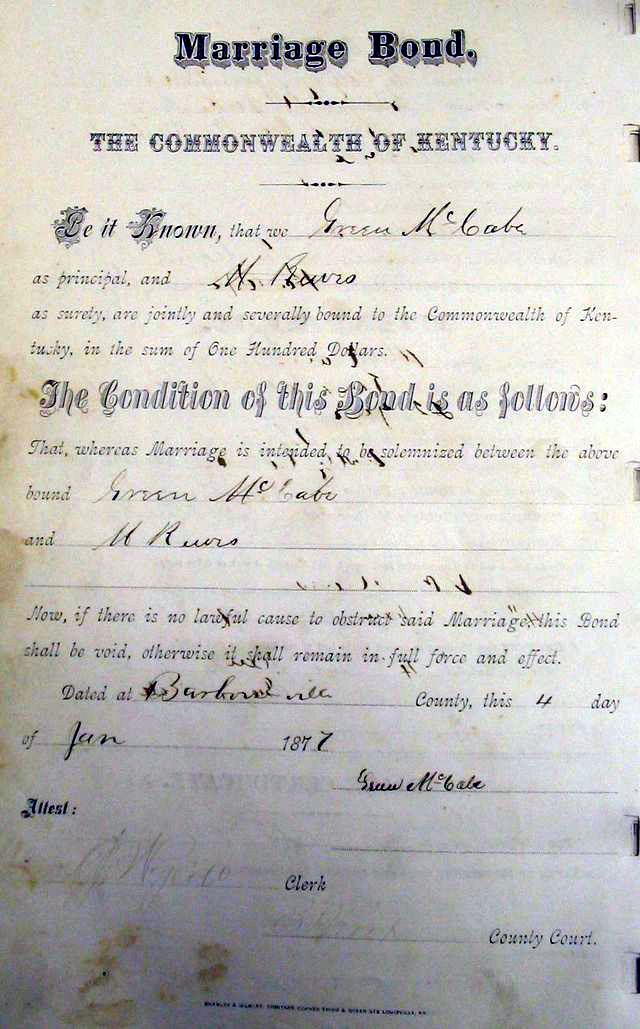 Marriage Bond.
THE COMMONWEALTH OF KENTUCKY.
Be it Known, that we Green McCabe
as principal, and M Reuvs
as surety, are jointly and severally bound to the Commonwealth of Ken-
tucky, in the sum of One Hundred Dollars.
The Condition of this Bond is as follows:
That, whereas Marriage is intended to be solemnized between the above
bound Green McCabe
and M Reuvs
Now, if there is no lawful cause to obstruct said Marriage, this Bond
shall be void, otherwise it shall remain in full force and effect.
Dated at Barbourville County, this 4 day
of Jan 1877
Green McCabe
Attest:
Clerk
County Court.